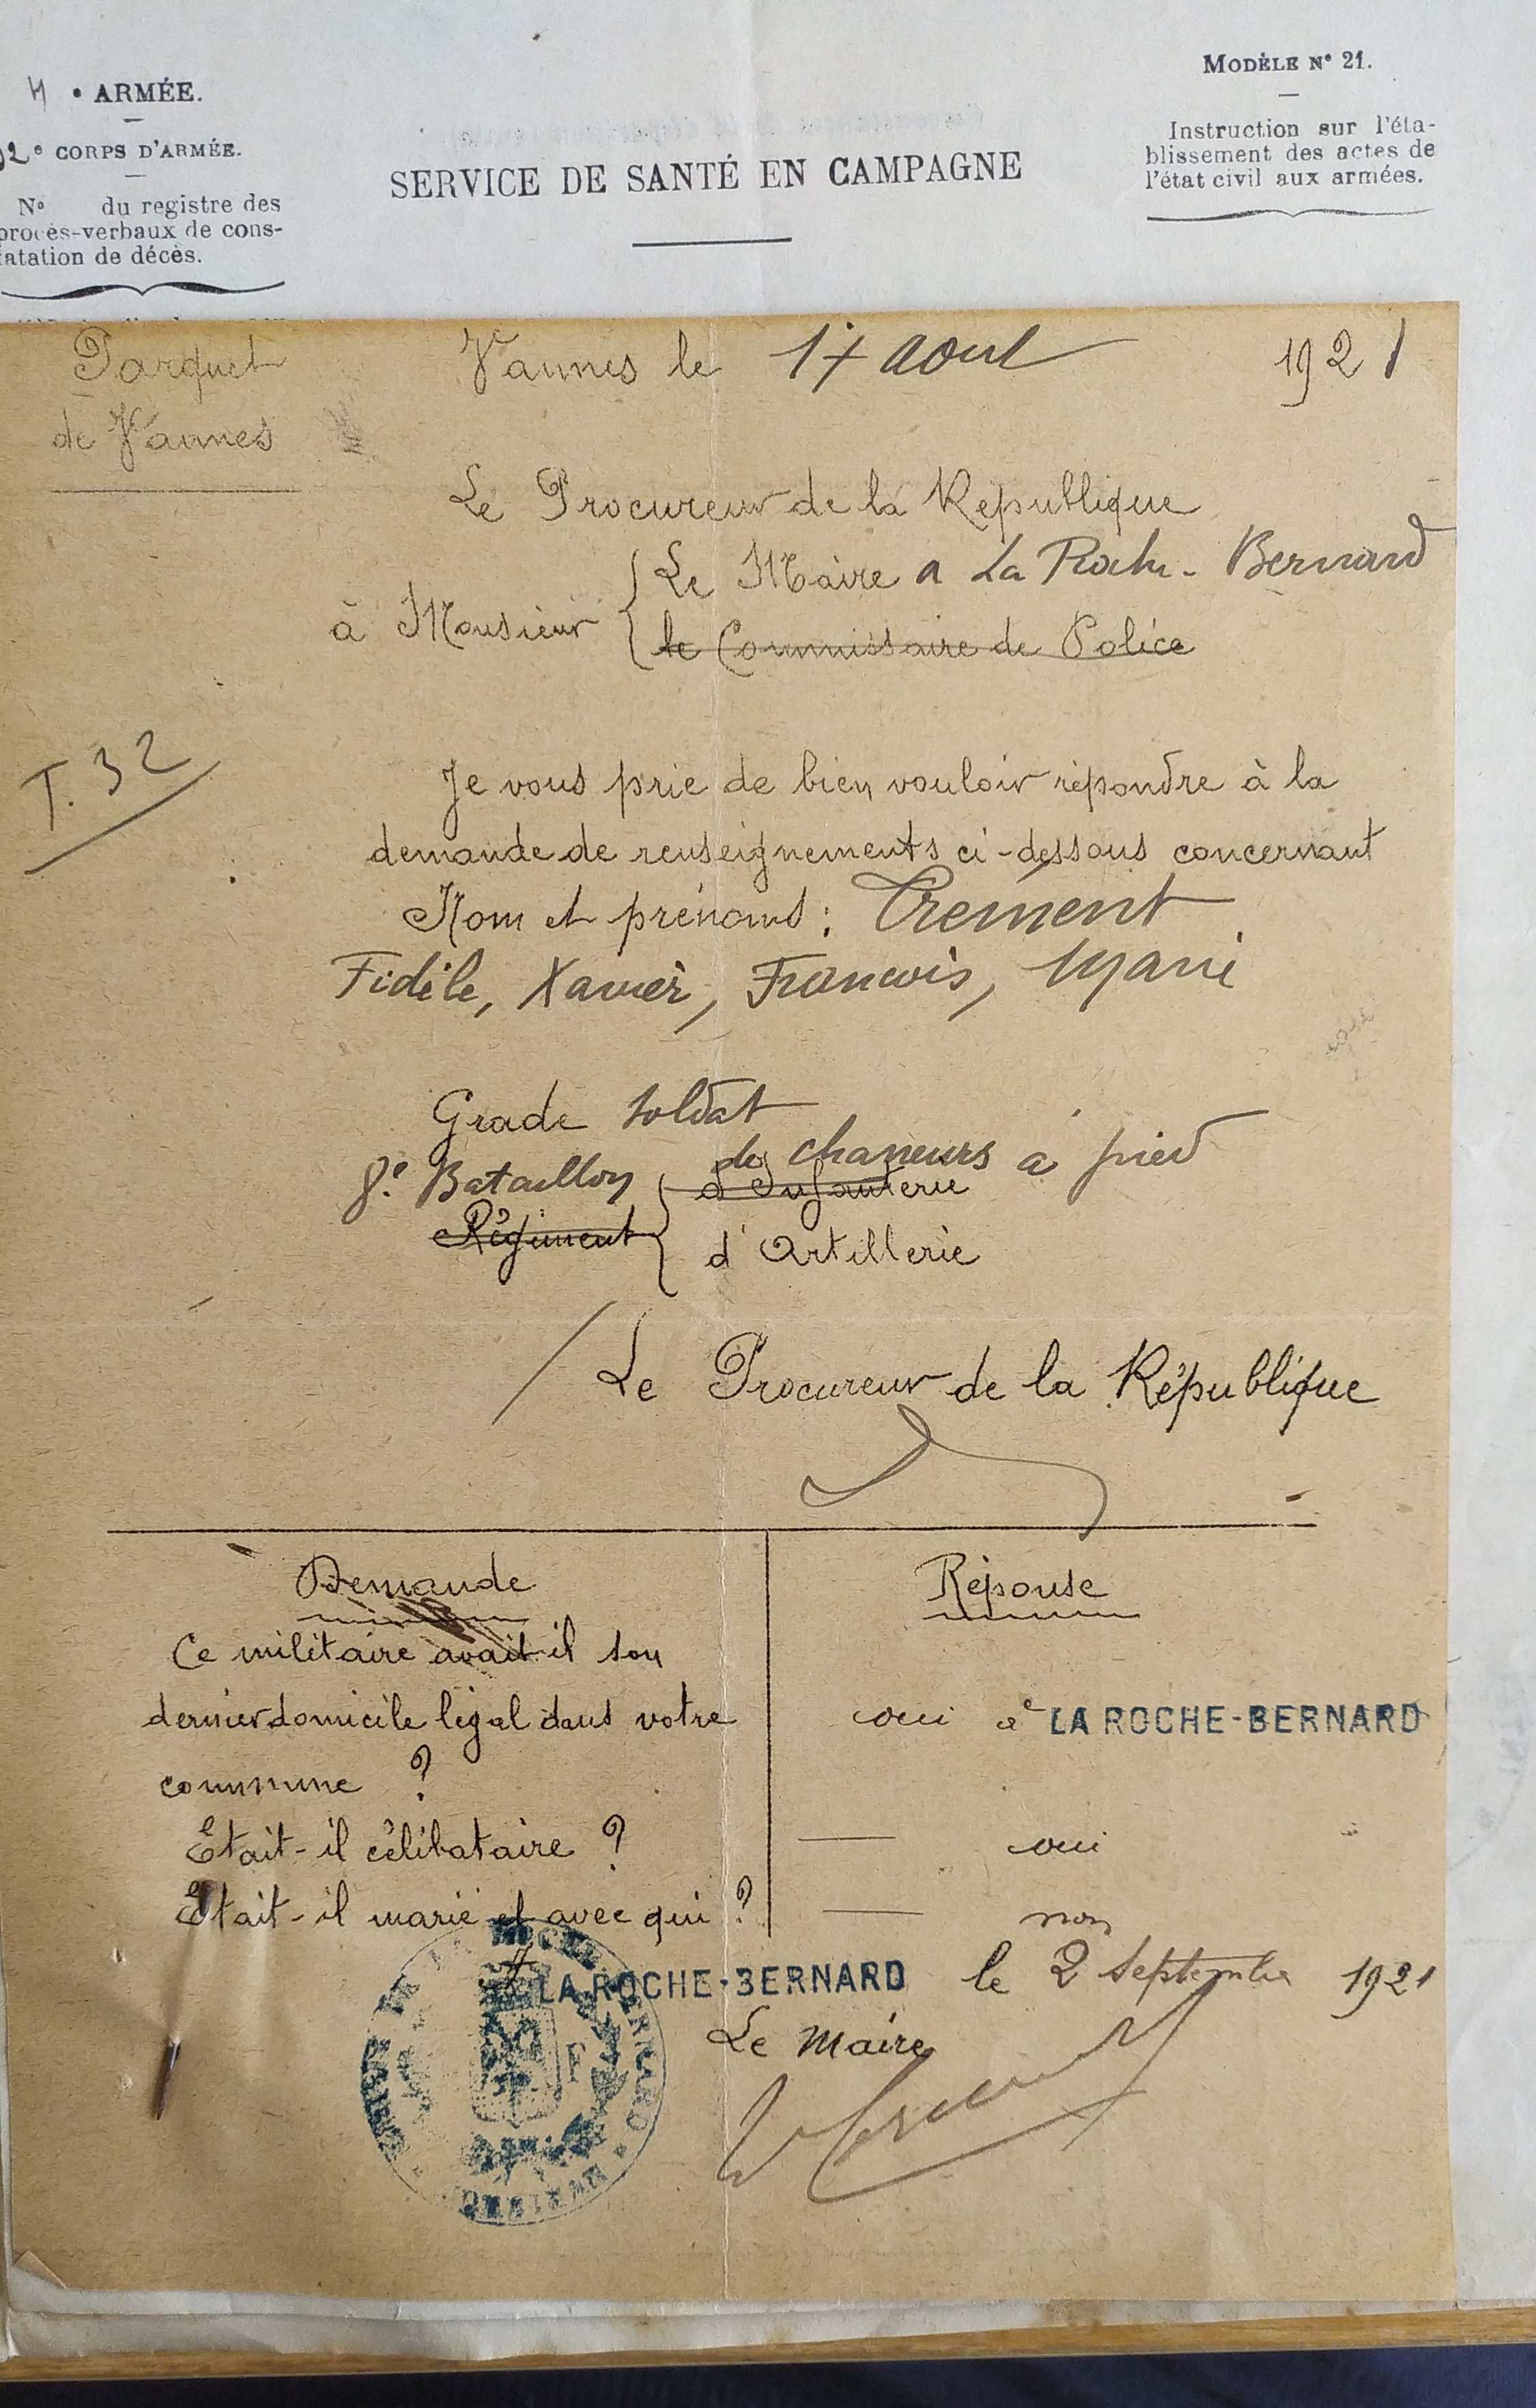 4 e ARMÉE.
2e CORPS D'ARMÉE.
No du registre des
procès-verbaux de cons-
tatation de décès.
SERVICE DE SANTÉ EN CAMPAGNE
MODÈLE No 21.
Instruction sur l'éta-
blissement des actes de
l'état civil aux armées.
Parquet
de Vannes
Vannes le 17 aout 1921
Le Procureur de la République
à Monsieur
Le Maire a La Roche-Bernard
le Commissaire de Police
T. 32
Je vous prie de bien vouloir répondre à la
demande de renseignements ci-dessous concernant
Nom et prénoms : Crément
Fidèle, Xavier, Francois, Marie
Grade soldat
8e Bataillon des chasseurs à pied
d'Infanterie
Régiment
d'Artillerie
Le Procureur de la République
Demande
Réponse
Ce militaire avait-il son
dernier domicile légal dans votre
commune ?
oui à LA ROCHE-BERNARD
Etait-il célibataire ?
— oui
Etait-il marié et avec qui ?
— non
LA ROCHE-BERNARD le 2 Septembre 1921
Le Maire